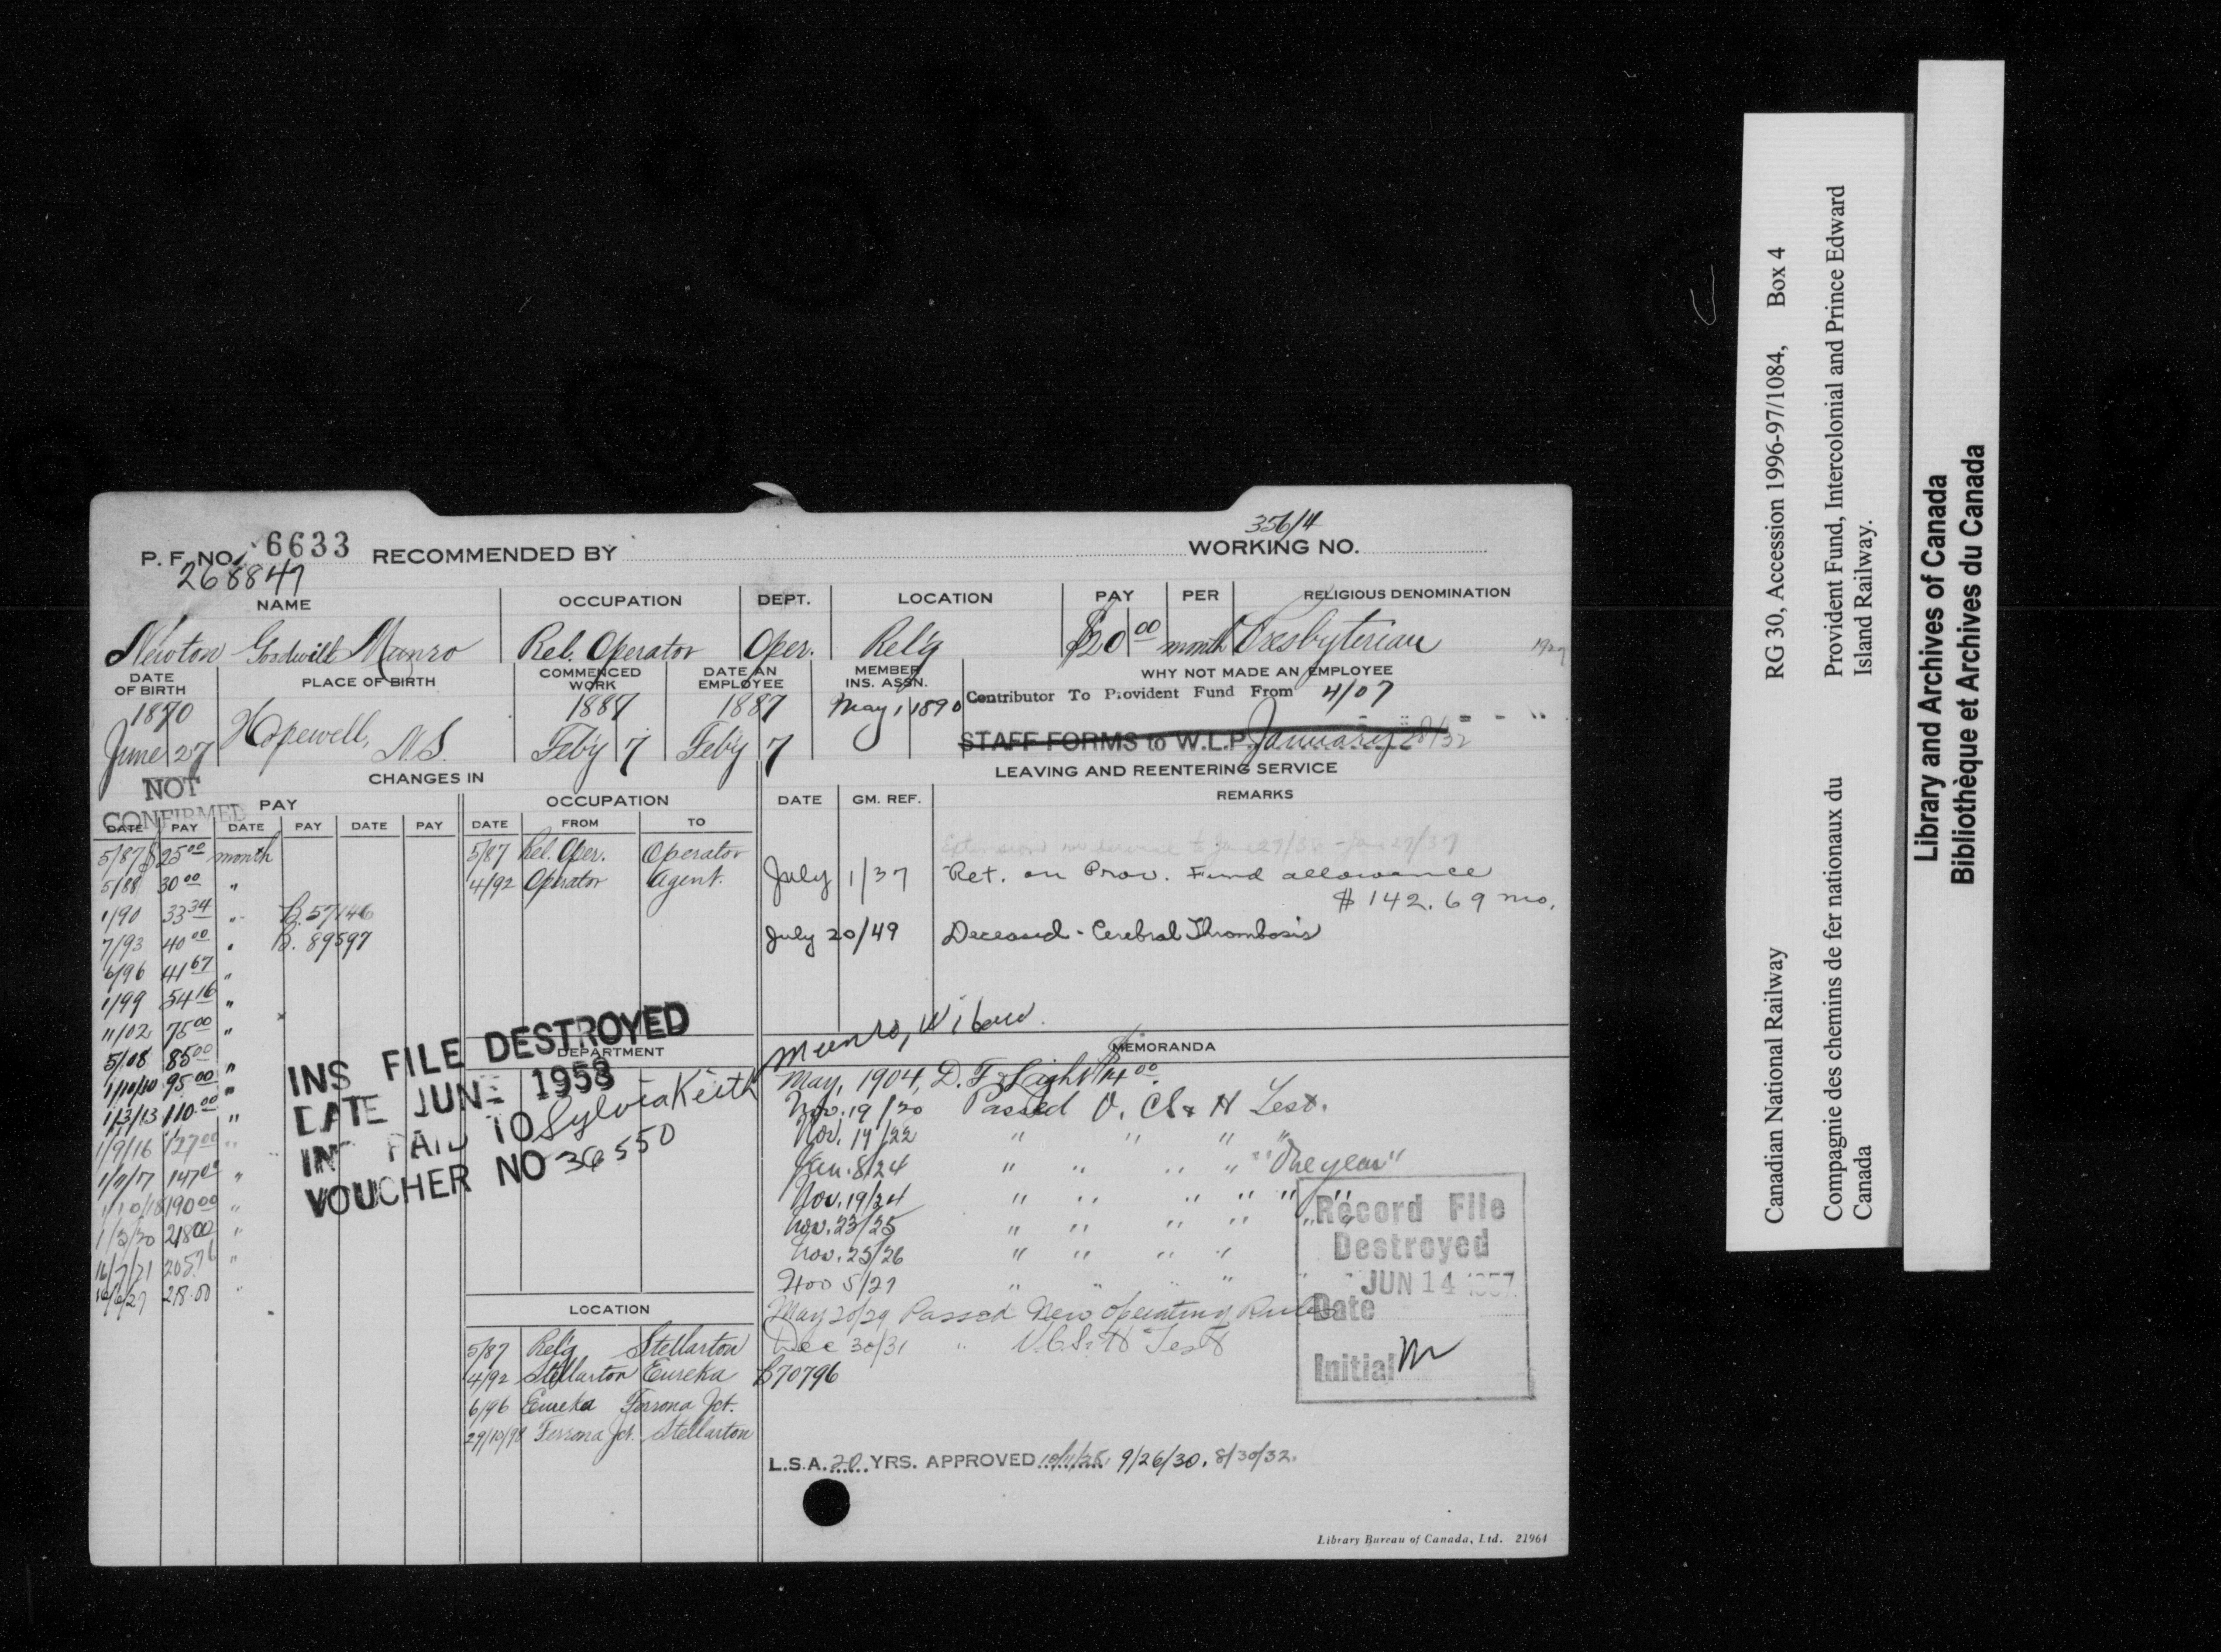 356/4
P. F. NO. 6633 RECOMMENDED BY WORKING NO.
268847
NAME OCCUPATION DEPT. LOCATION PAY PER RELIGIOUS DENOMINATION
Newton Goodwill Munro Rel. Operator Oper. Rel'g $20 00 month Presbyterian
DATE OF BIRTH PLACE OF BIRTH COMMENCED WORK DATE AN EMPLOYEE MEMBER INS. ASSN. WHY NOT MADE AN EMPLOYEE
1870 Hopewell, N.S. 1887 1887 May 1 1890 Contributor To Provident Fund From 4/07
June 27 Feb'y 7 Feb'y 7 STAFF FORMS to W.L.P. January
NOT CONFIRMED
CHANGES IN
LEAVING AND REENTERING SERVICE
PAY
DATE PAY DATE PAY DATE PAY
5/87 $25 00 month
5/88 30 00 "
1/90 33 34 " B. 57146
7/93 40 00 " B. 89597
6/96 41 67 "
1/99 54 16 "
11/02 75 00 "
5/08 85 00 "
1/10/10 95 00 "
1/3/13 110.00 "
1/9/16 127 00 "
1/9/17 147 00 "
1/10/18 190 00 "
1/3/20 218 00 "
16/7/21 205.76 "
16/6/27 218.00 "
OCCUPATION
DATE FROM TO
5/87 Rel. Oper. Operator
4/92 Operator Agent.
INS FILE DESTROYED
DATE JUNE 1958
INS PAID TO Sylvia Keith
VOUCHER NO 36550
DEPARTMENT
LOCATION
5/87 Rel'g Stellarton
4/92 Stellarton Eureka
6/96 Eureka Ferrona Jct.
29/10/98 Ferrona Jct. Stellarton
DATE GM. REF. REMARKS
July 1/37 Ret. on Prov. Fund allowance
$142.69 mo.
July 20/49 Deceased - Cerebral Thrombosis
Munro,
MEMORANDA
May, 1904, D. F. & Light $14 00.
Nov. 19/20 Passed V. CS & H Test.
Nov. 19/22 " " " "
Jan. 8/24 " " " " "One year"
Nov. 19/24 " " " " " "
Nov. 23/25 " " " " " "
Nov. 25/26 " " " "
Nov 5/27 " " " " "
May 20/29 Passed New Operating Rules
Dec 30/31 " V.C.S. & H Test
B70796
Record File
Destroyed
JUN 14 1957
Date
Initial
L.S.A. 20 YRS. APPROVED 10/11/28, 9/26/30, 8/30/32.
Library Bureau of Canada, Ltd. 21964
Canadian National Railway RG 30, Accession 1996-97/1084, Box 4
Compagnie des chemins de fer nationaux du Canada Provident Fund, Intercolonial and Prince Edward Island Railway.
Library and Archives of Canada
Bibliothèque et Archives du Canada